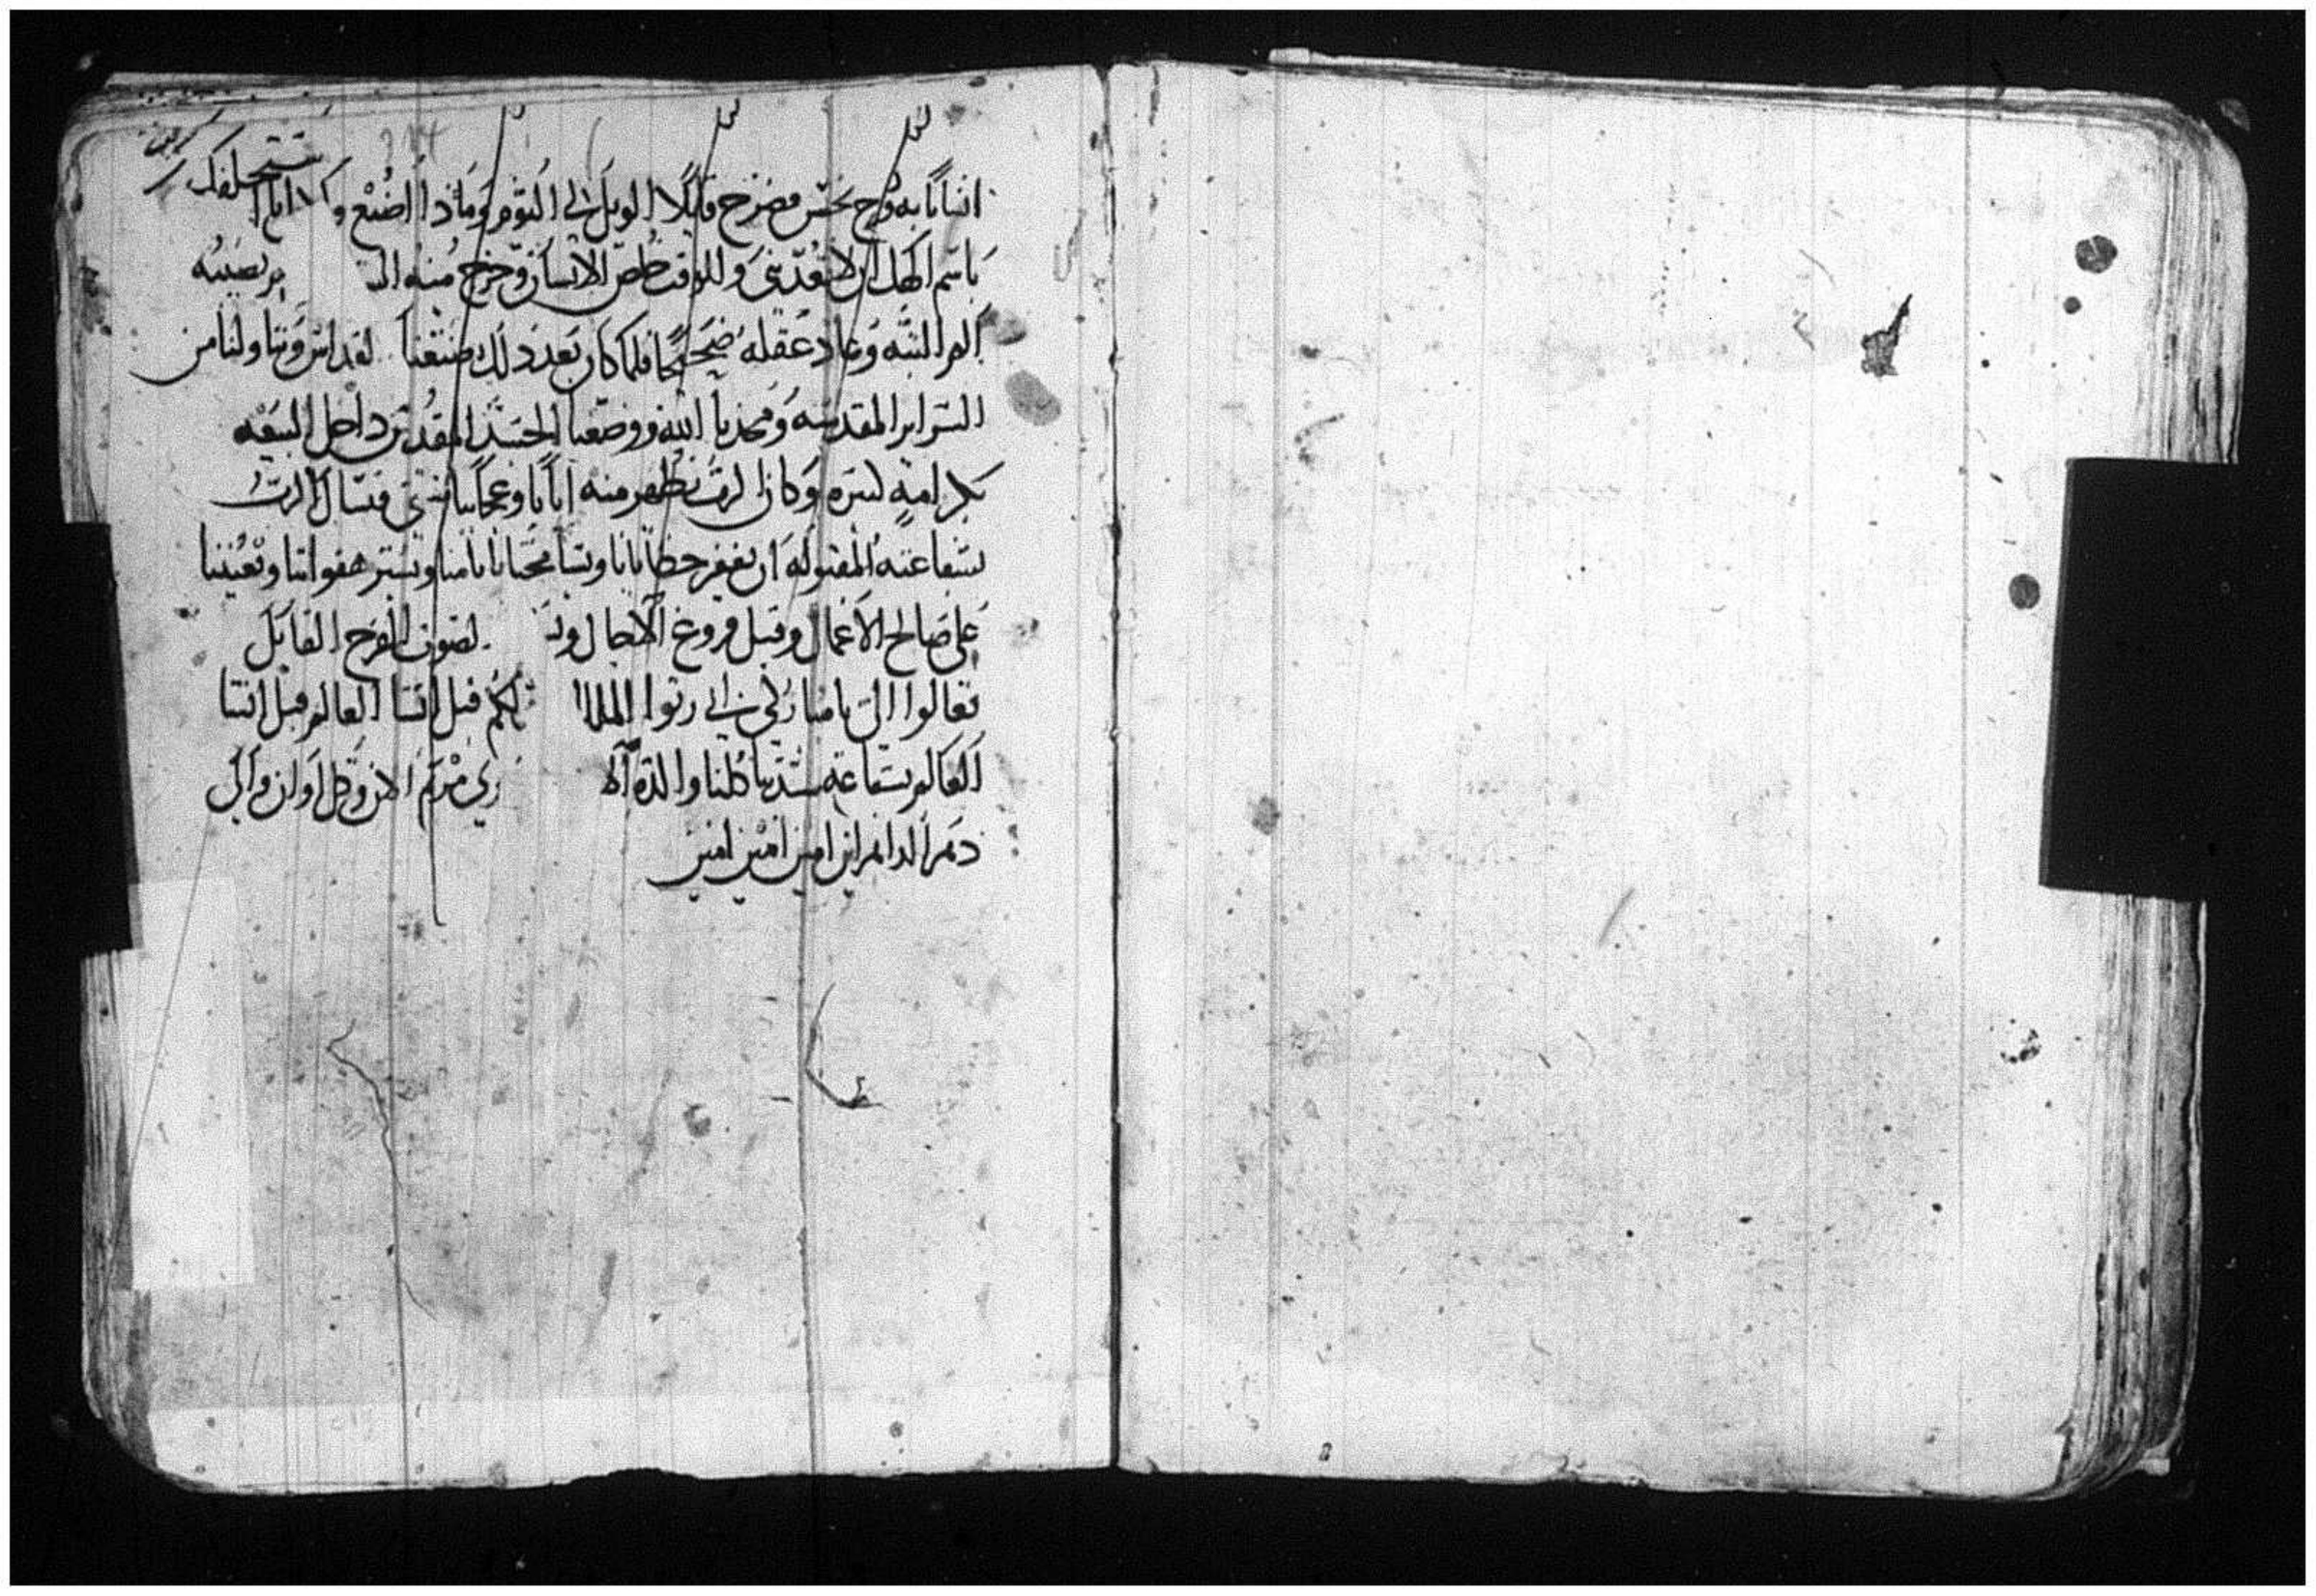 انسانا به روح نجس فصرخ قايلا الويل لي اليوم وماذا اصنع و انا استحلفك
باسم الهك ان لا تعذبني وللوقت خلص الانسان وخرج منه الـ بر بصيبه
الم البته وعاد عقله صحيحا فلما كان بعد ذلك صنعنا لقداس وتناولنا من
السراير المقدسه ومجدنا الله ووضعنا الجسد المقدس داخل البيعه
بكرامة لسره وكان الرب يظهر منه اياتا وعجايبا فنسال الرب
بشفاعته المقبوله ان يغفر خطايانا ويسامحنا باثامنا ويستر هفواتنا ويعيننا
على صالح الاعمال وقبل فروغ الاجال و لصوت الفرح القايل
تعالوا الي يا مباركي ابي رثوا الملك لكم قبل انشا العالم قبل انشا
العالم بشفاعة ستنا كلنا والدة الا ري مرتمريم الان وكل اوان والى
دهر الداهرين امين امين امين